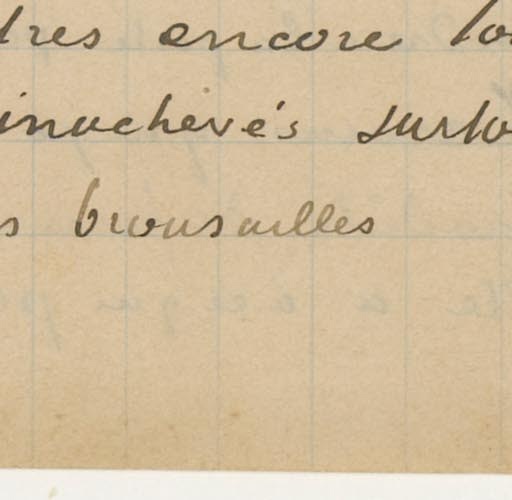 tres encore
inachevés surto
s brousailles